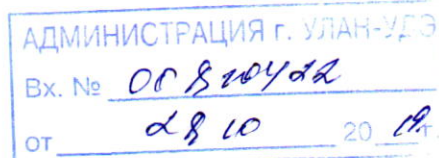 АДМИНИСТРАЦИЯ г. УЛАН-УДЭ
Вх. №
от 28 10 20 19 г.